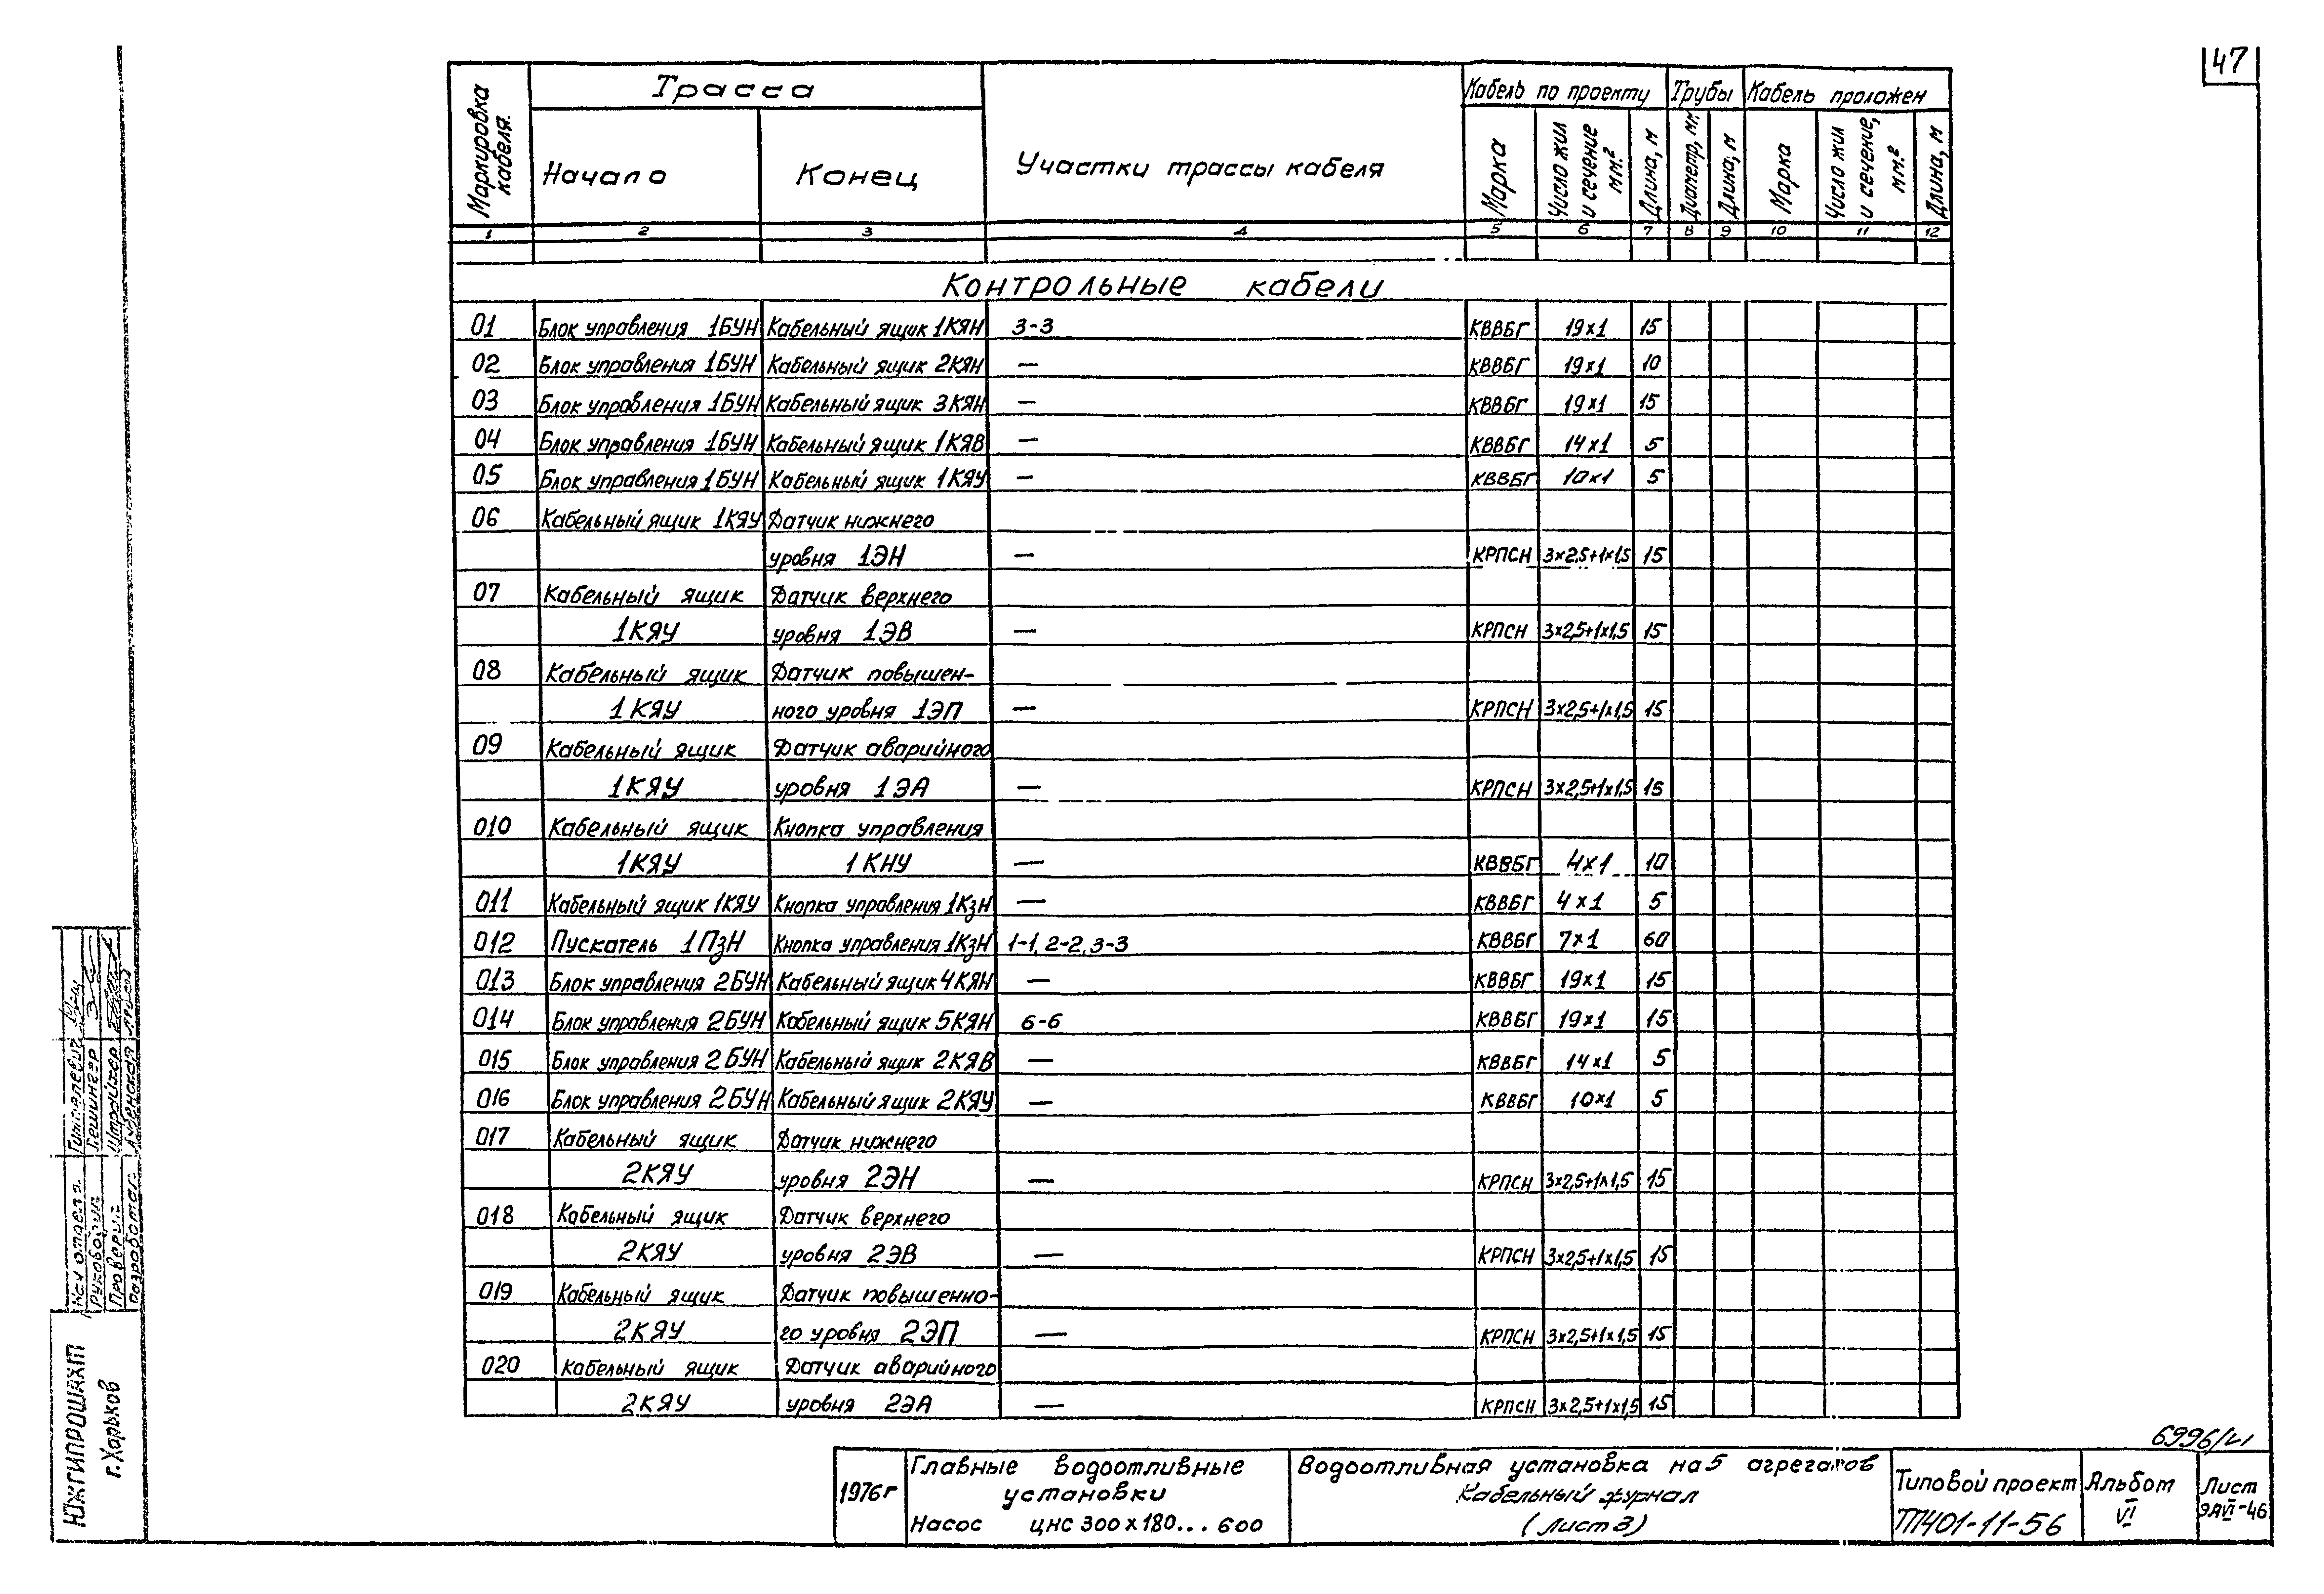 47
Маркировка кабеля.
Трасса
Начало
Конец
Участки трассы кабеля
Кабель по проекту
Марка
Число жил и сечение мм.²
Длина, м
Трубы
Диаметр, мм.
Длина, м
Кабель проложен
Марка
Число жил и сечение, мм.²
Длина, м
1 2 3 4 5 6 7 8 9 10 11 12
Контрольные кабели
01 Блок управления 1БУН Кабельный ящик 1КЯН 3-3 КВВБГ 19×1 15
02 Блок управления 1БУН Кабельный ящик 2КЯН — КВВБГ 19×1 10
03 Блок управления 1БУН Кабельный ящик 3КЯН — КВВБГ 19×1 15
04 Блок управления 1БУН Кабельный ящик 1КЯВ — КВВБГ 14×1 5
05 Блок управления 1БУН Кабельный ящик 1КЯУ — КВВБГ 10×1 5
06 Кабельный ящик 1КЯУ Датчик нижнего
уровня 1ЭН — КРПСН 3×2,5+1×1,5 15
07 Кабельный ящик Датчик верхнего
1КЯУ уровня 1ЭВ — КРПСН 3×2,5+1×1,5 15
08 Кабельный ящик Датчик повышен-
1КЯУ ного уровня 1ЭП — КРПСН 3×2,5+1×1,5 15
09 Кабельный ящик Датчик аварийного
1КЯУ уровня 1ЭА — КРПСН 3×2,5+1×1,5 15
010 Кабельный ящик Кнопка управления
1КЯУ 1КНУ — КВВБГ 4×1 10
011 Кабельный ящик 1КЯУ Кнопка управления 1КзН — КВВБГ 4×1 5
012 Пускатель 1ПзН Кнопка управления 1КзН 1-1, 2-2, 3-3 КВВБГ 7×1 60
013 Блок управления 2БУН Кабельный ящик 4КЯН — КВВБГ 19×1 15
014 Блок управления 2БУН Кабельный ящик 5КЯН 6-6 КВВБГ 19×1 15
015 Блок управления 2БУН Кабельный ящик 2КЯВ — КВВБГ 14×1 5
016 Блок управления 2БУН Кабельный ящик 2КЯУ — КВВБГ 10×1 5
017 Кабельный ящик Датчик нижнего
2КЯУ уровня 2ЭН — КРПСН 3×2,5+1×1,5 15
018 Кабельный ящик Датчик верхнего
2КЯУ уровня 2ЭВ — КРПСН 3×2,5+1×1,5 15
019 Кабельный ящик Датчик повышенно-
2КЯУ го уровня 2ЭП — КРПСН 3×2,5+1×1,5 15
020 Кабельный ящик Датчик аварийного
2КЯУ уровня 2ЭА — КРПСН 3×2,5+1×1,5 15
Нач отдела
Руководил
Проверил
Разработал
ЮЖГИПРОШАХТ
г.Харьков
1976г
Главные водоотливные
установки
Насос ЦНС 300×180...600
Водоотливная установка на 5 агрегатов
Кабельный журнал
(Лист 3)
Типовой проект
ТП401-11-56
Альбом
VI
Лист
ЭАVI-46